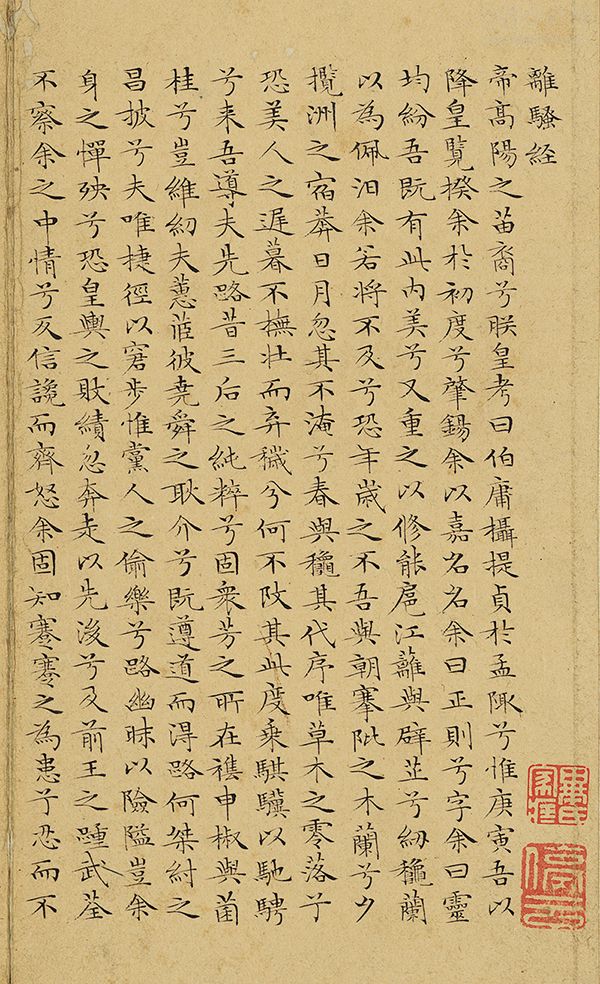 離騷經
帝高陽之苗裔兮朕皇考曰伯庸攝提貞於孟陬兮惟庚寅吾以
降皇覽揆余於初度兮肇錫余以嘉名名余曰正則兮字余曰靈
均紛吾既有此內美兮又重之以修能扈江蘺與辟芷兮紉龝蘭
以為佩汨余若將不及兮恐年歲之不吾與朝搴阰之木蘭兮夕
攬洲之宿莽日月忽其不淹兮春與龝其代序唯草木之零落兮
恐美人之遲暮不撫壯而弃穢兮何不改其此度乘騏驥以馳騁
兮来吾導夫先路昔三后之純粹兮固衆芳之所在襍申椒與菌
桂兮豈維紉夫蕙茝彼堯舜之耿介兮既遵道而淂路何桀紂之
昌披兮夫唯捷徑以窘步惟黨人之偷樂兮路幽昧以險隘豈余
身之憚殃兮恐皇輿之敗績忽奔走以先後兮及前王之踵武荃
不察余之中情兮反信讒而齊怒余固知謇謇之為患兮忍而不